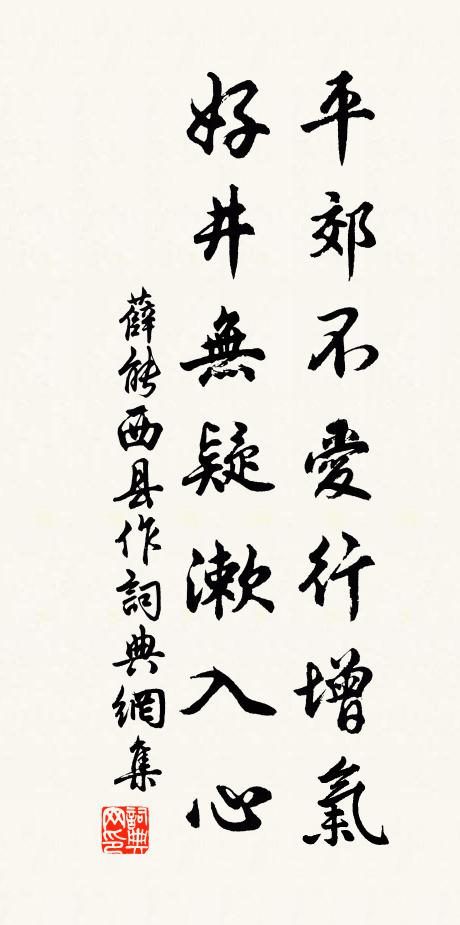 平郊不愛行增氣
好井無疑漱入心
薛能西县作詞典網集
詞典网印